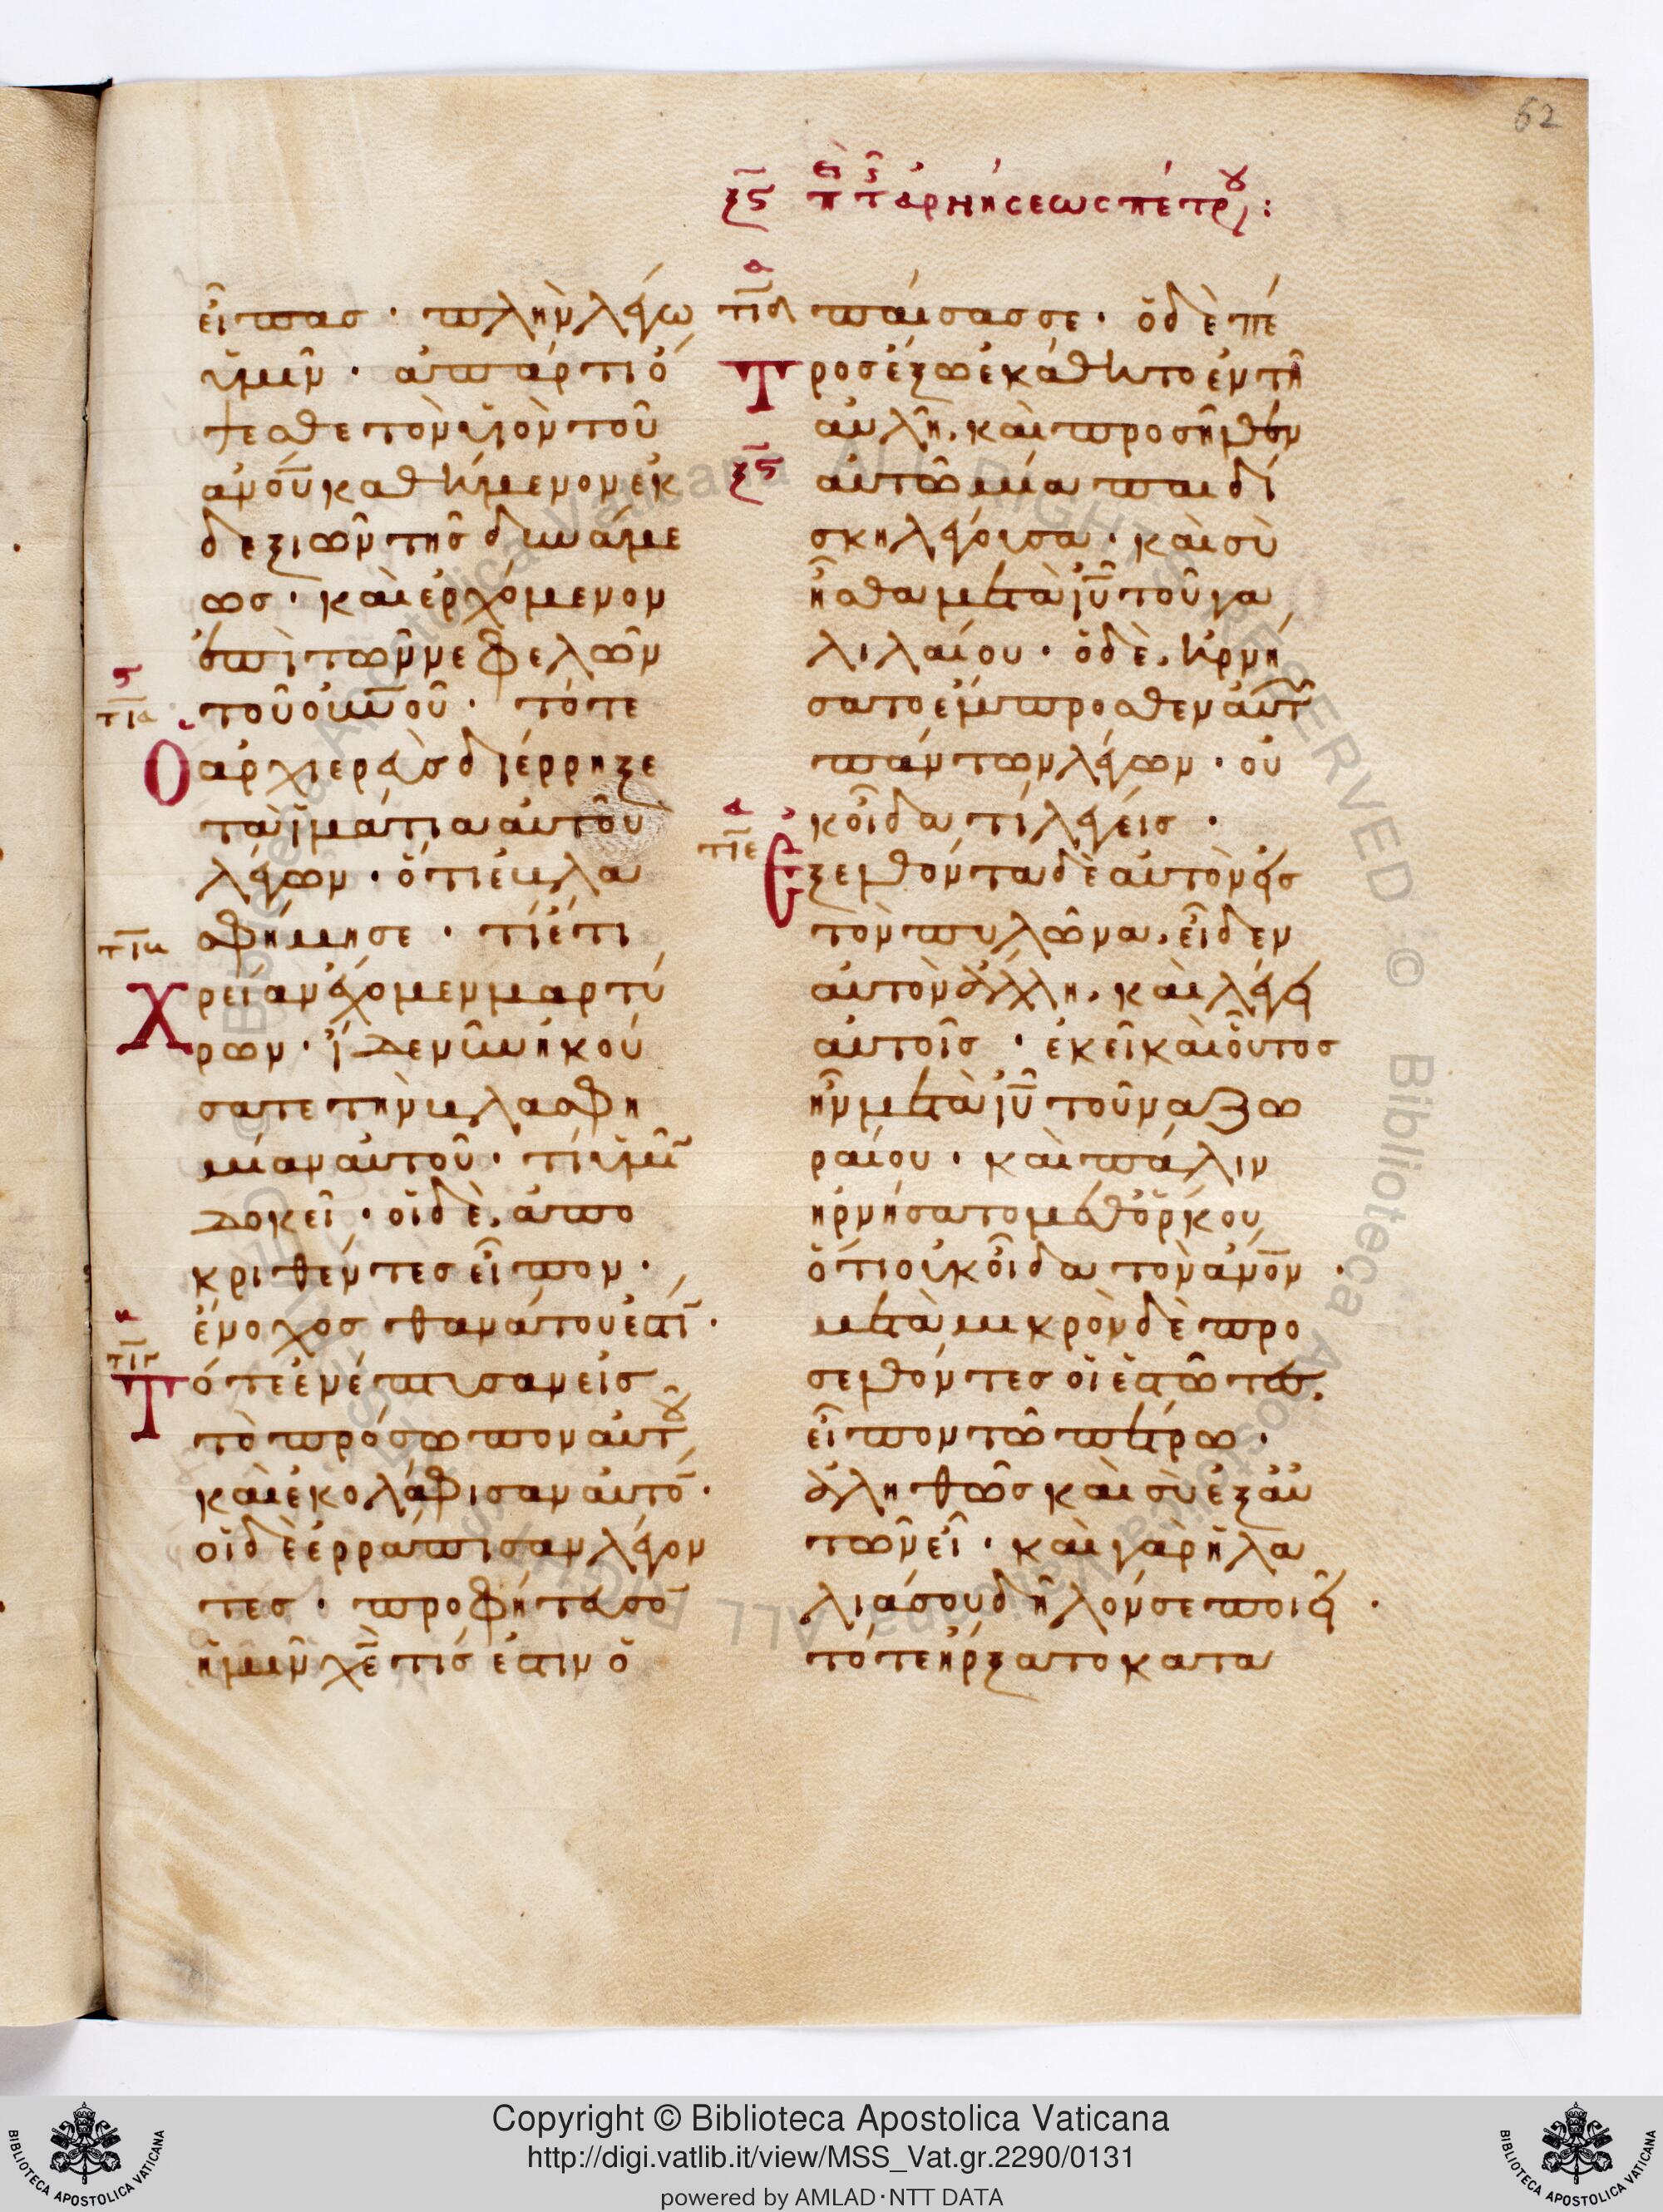 62
ξς̅ πε̅ρὶ τῆς ἀρνήσεως πέτρου:
εἶπας · πλὴν λέγω
ὑμῖν · ἀπάρτι ὄ
ψεσθε τὸν υἱὸν τοῦ
ἀν̅ου̅ καθήμενον ἐκ
δεξιῶν τῆς δυνάμε
ως · καὶ ἐρχόμενον
ἐπὶ τῶν νεφελῶν
τοῦ οὐν̅οῦ · τότε
τια
ς
Ὁ ἀρχιερεὺς διέρρηξε
τὰ ἱμάτια αὐτοῦ
λέγων · ὅτι ἐβλα
τιβ
σφήμησε · τί ἔτι
Χρείαν ἔχομεν μαρτύ
ρων · ἴδε νῦν ἠκού
σατε τὴν βλασφη
μίαν αὐτοῦ · τί ὑμῖ̅
δοκεῖ · οἱ δὲ, ἀπο
κριθέντες εἶπον ·
ἔνοχος θανάτου ἐστί̅ ·
τιγ
Τότε ἐνέπτυσαν εἰς
τὸ πρόσωπον αὐτοῦ
καὶ ἐκολάφισαν αὐτό̅ ·
οἱ δὲ ἐρράπισαν λέγον
τες · προφήτευσο̅
ἡμῖν χ̅ε τίς ἐστιν ὁ
τιδ
α
παίσας σε · ὁ δὲ πέ
Τρος ἔξω ἐκάθητο ἐν τῆ
αὐλῆ, καὶ προσῆλθεν
ξς̅
αὐτῶ μία παιδί
σκη λέγουσα · καὶ σὺ
ἦσθα μετὰ ι̅υ̅ τοῦ γα
λιλαίου · ὁ δὲ, ἠρνή
σατο ἔμπροσθεν αὐτῶ̅
πάντων λέγων · οὐ
κ οἶδα τί λέγεις ·
τιε
α
Ἐξελθόντα δὲ αὐτὸν εἰς
τὸν πυλῶνα, εἶδεν
αὐτὸν ἄλλη, καὶ λέγει
αὐτοῖς · ἐκεῖ καὶ οὗτος
ἦν μετὰ ι̅υ̅ τοῦ ναζω
ραίου · καὶ πάλιν
ἠρνήσατο μεθ ὅρκου
ὅτι οὐκ οἶδα τὸν ἄν̅ον ·
μετὰ μικρὸν δὲ προ
σελθόντες οἱ ἑστῶτες,
εἶπον τῶ πέτρω ·
ἀληθῶς καὶ σὺ ἐξ αὐ
τῶν εἶ · καὶ γὰρ ἡ λα
λιά σου δῆλόν σε ποιεῖ ·
τότε ἤρξατο κατα
Copyright © Biblioteca Apostolica Vaticana
http://digi.vatlib.it/view/MSS_Vat.gr.2290/0131
powered by AMLAD·NTT DATA
BIBLIOTECA APOSTOLICA VATICANA
BIBLIOTECA APOSTOLICA VATICANA